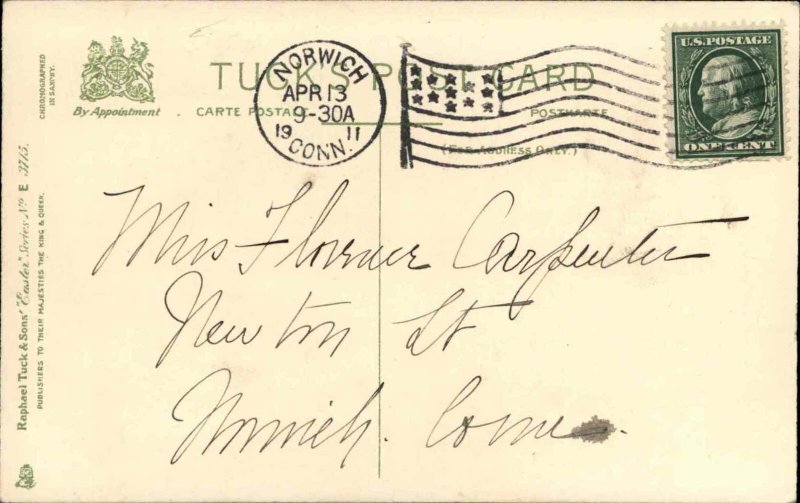 TUCK'S POST CARD
CARTE POSTALE
POSTKARTE
(FOR ADDRESS ONLY.)
By Appointment
CHROMOGRAPHED
IN SAXONY.
NORWICH
APR 13
9-30A
19 11
CONN.
U.S. POSTAGE
ONE CENT
Miss Florence Carpenter
Newton St
Norwich. Conn.
Raphael Tuck & Sons' "Easter" Series No E 3775.
PUBLISHERS TO THEIR MAJESTIES THE KING & QUEEN.